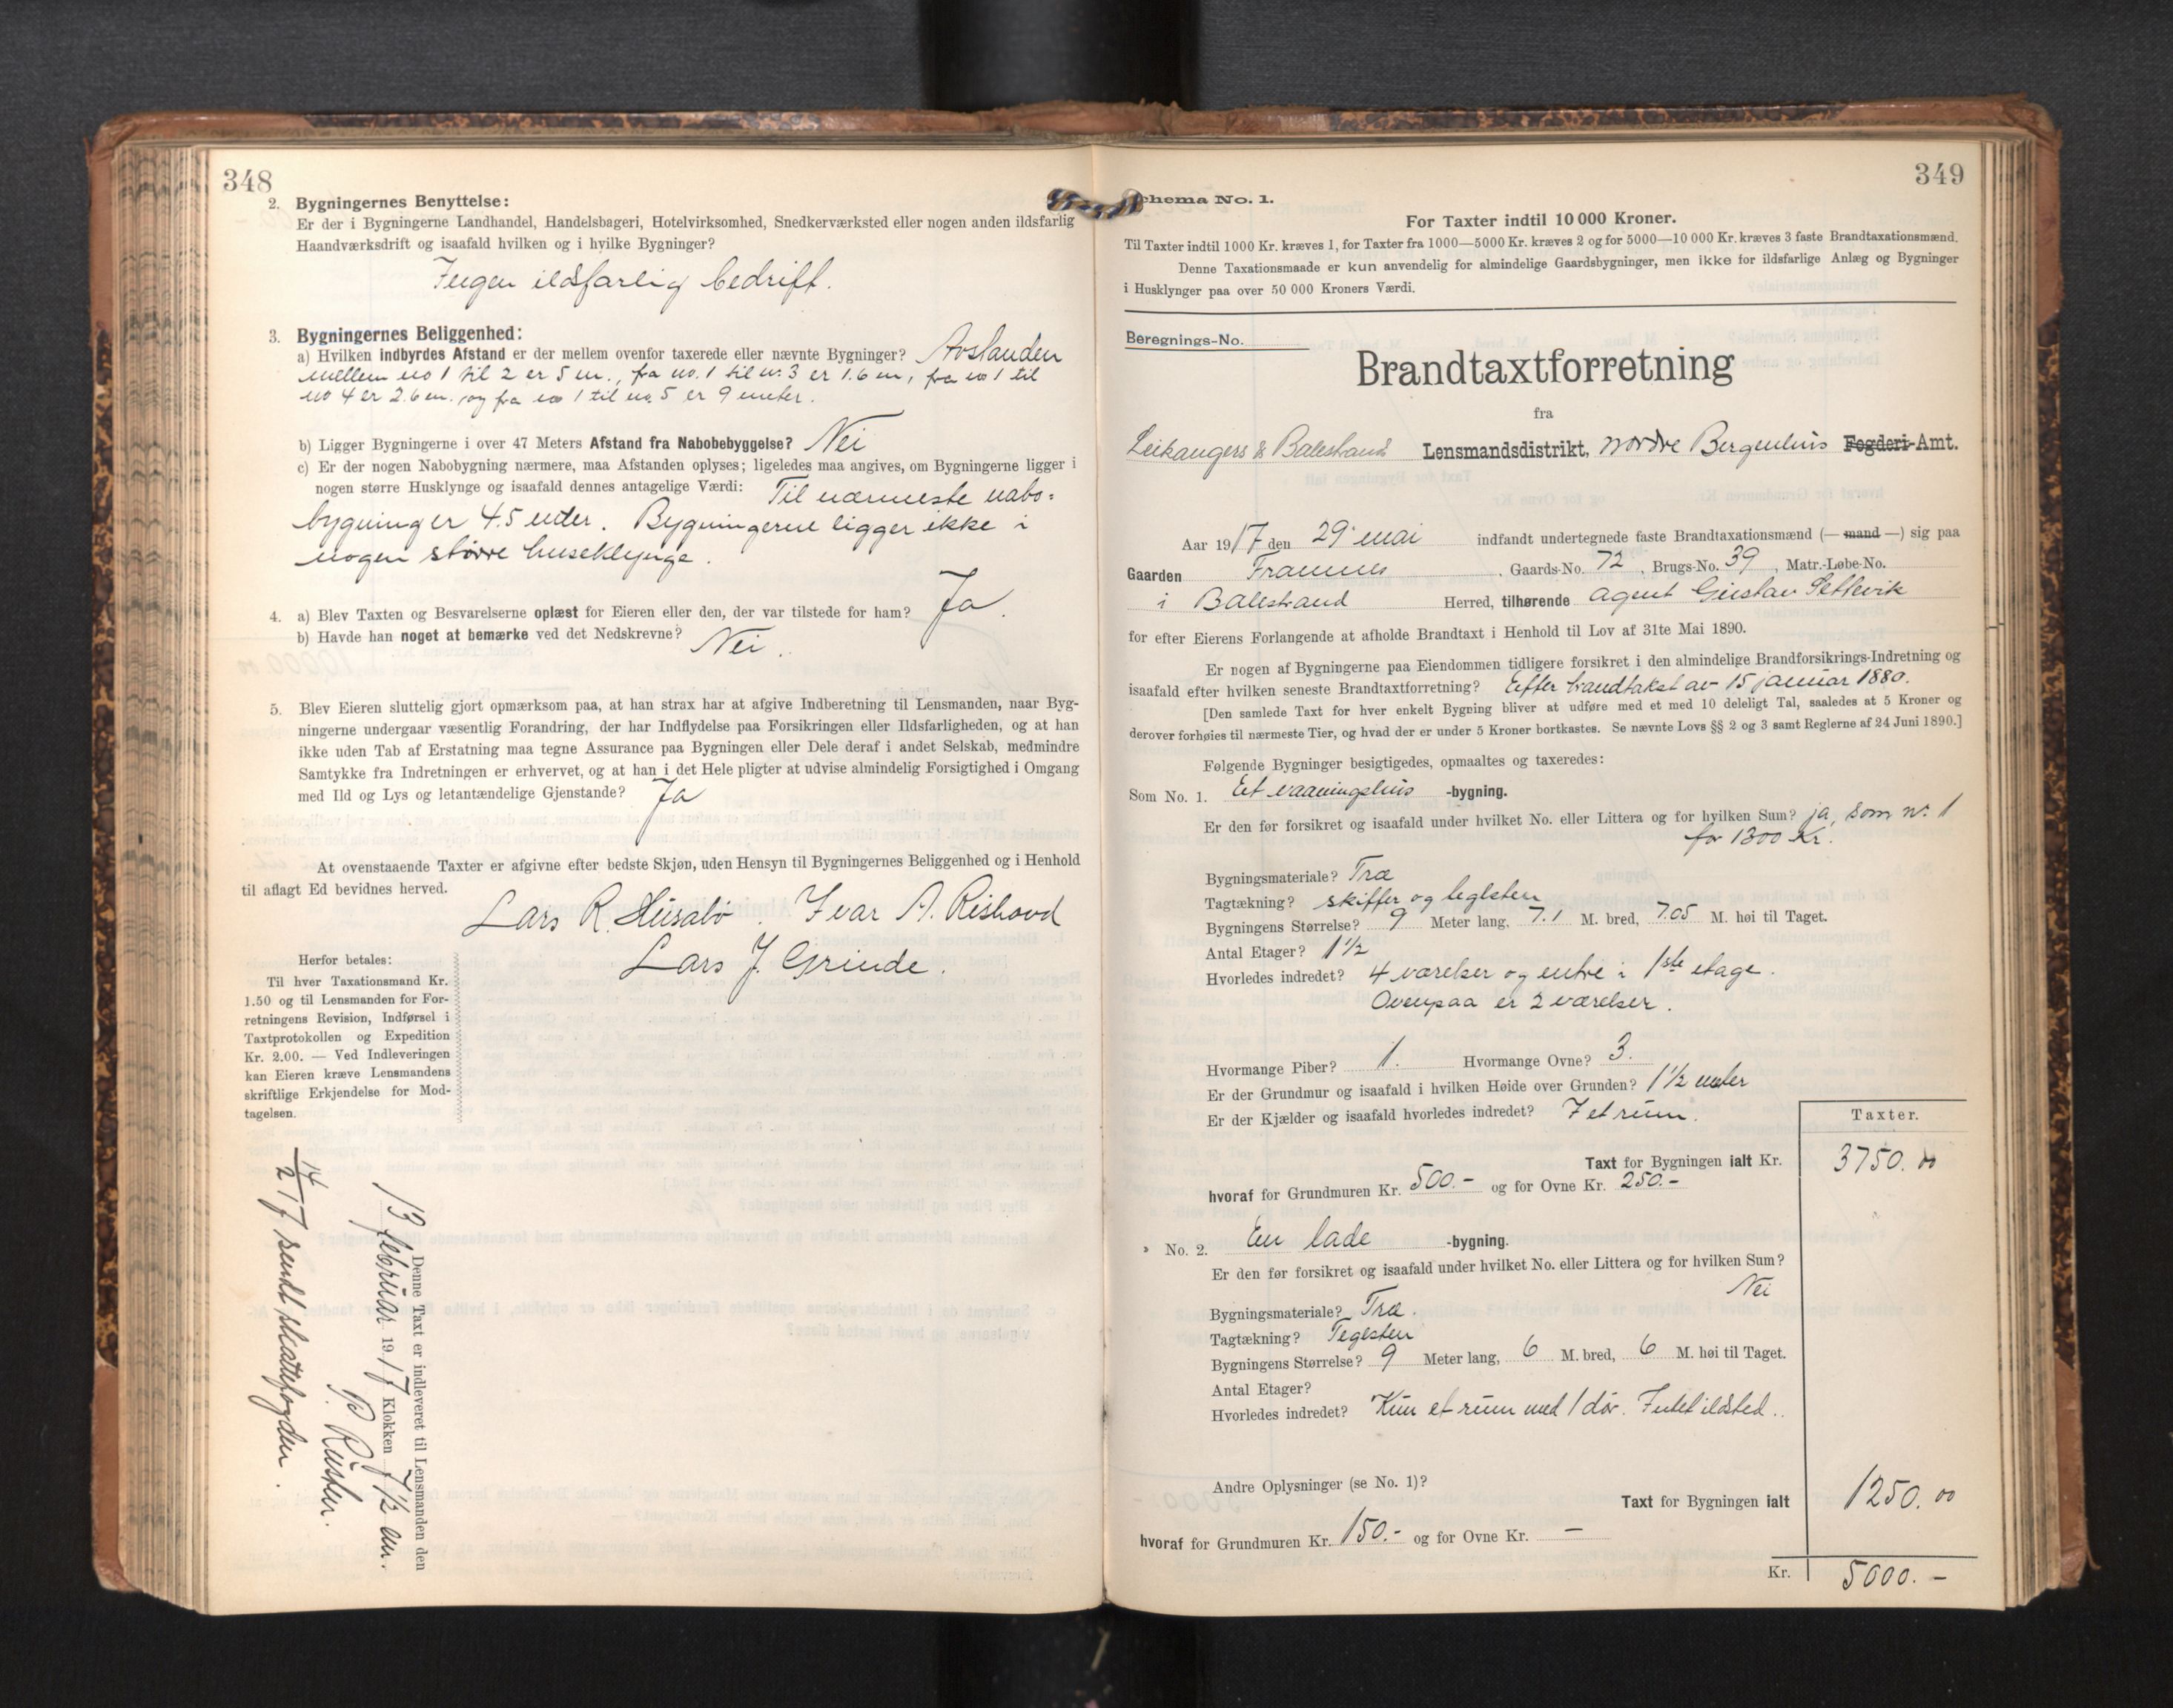 348
2. Bygningernes Benyttelse:
Er der i Bygningerne Landhandel, Handelsbageri, Hotelvirksomhed, Snedkerværksted eller nogen anden ildsfarlig
Haandværksdrift og isaafald hvilken og i hvilke Bygninger?
Ingen ildsfarlig bedrift.
3. Bygningernes Beliggenhed:
a) Hvilken indbyrdes Afstand er der mellem ovenfor taxerede eller nævnte Bygninger? Avstanden
mellem no 1 til 2 er 5 m., fra no. 1 til nr. 3 er 1.6 m, fra no 1 til
no 4 er 2.6 m. og fra no 1 til no. 5 er 9 meter.
b) Ligger Bygningerne i over 47 Meters Afstand fra Nabobebyggelse? Nei
c) Er der nogen Nabobygning nærmere, maa Afstanden oplyses; ligeledes maa angives, om Bygningerne ligger i
nogen større Husklynge og isaafald dennes antagelige Værdi: Til nærmeste nabo=
bygning er 4.5 meter. Bygningerne ligger ikke i
nogen større huseklynge.
4. a) Blev Taxten og Besvarelserne oplæst for Eieren eller den, der var tilstede for ham? Ja.
b) Havde han noget at bemærke ved det Nedskrevne? Nei.
5. Blev Eieren sluttelig gjort opmærksom paa, at han strax har at afgive Indberetning til Lensmanden, naar Byg-
ningerne undergaar væsentlig Forandring, der har Indflydelse paa Forsikringen eller Ildsfarligheden, og at han
ikke uden Tab af Erstatning maa tegne Assurance paa Bygningen eller Dele deraf i andet Selskab, medmindre
Samtykke fra Indretningen er erhvervet, og at han i det Hele pligter at udvise almindelig Forsigtighed i Omgang
med Ild og Lys og letantændelige Gjenstande? Ja
At ovenstaaende Taxter er afgivne efter bedste Skjøn, uden Hensyn til Bygningernes Beliggenhed og i Henhold
til aflagt Ed bevidnes herved.
Lars R. Húsabö. Ivar A. Rishovd
Lars J. Grinde.
Herfor betales:
Til hver Taxationsmand Kr.
1.50 og til Lensmanden for For-
retningens Revision, Indførsel i
Taxtprotokollen og Expedition
Kr. 2.00. — Ved Indleveringen
kan Eieren kræve Lensmandens
skriftlige Erkjendelse for Mod-
tagelsen.
Denne Taxt er indleveret til Lensmanden den
13 februar 1917 Klokken 7 1/2 em.
P. Rusten.
14/2 17 sendt skattefogden.
349
Schema No. 1.
For Taxter indtil 10 000 Kroner.
Til Taxter indtil 1000 Kr. kræves 1, for Taxter fra 1000—5000 Kr. kræves 2 og for 5000—10 000 Kr. kræves 3 faste Brandtaxationsmænd.
Denne Taxationsmaade er kun anvendelig for almindelige Gaardsbygninger, men ikke for ildsfarlige Anlæg og Bygninger
i Husklynger paa over 50 000 Kroners Værdi.
Beregnings-No.
Brandtaxtforretning
fra
Leikangers & Balestrand Lensmandsdistrikt, nordre Bergenhus Fogderi-Amt.
Aar 1917 den 29 mai indfandt undertegnede faste Brandtaxationsmænd (— mand —) sig paa
Gaarden Framnes, Gaards-No. 72, Brugs-No. 39, Matr.-Løbe-No.
i Balestrand Herred, tilhørende agent Gustav
for efter Eierens Forlangende at afholde Brandtaxt i Henhold til Lov af 31te Mai 1890.
Er nogen af Bygningerne paa Eiendommen tidligere forsikret i den almindelige Brandforsikrings-Indretning og
isaafald efter hvilken seneste Brandtaxtforretning? Efter brandtakst av 15 januar 1880.
[Den samlede Taxt for hver enkelt Bygning bliver at udføre med et med 10 deleligt Tal, saaledes at 5 Kroner og
derover forhøies til nærmeste Tier, og hvad der er under 5 Kroner bortkastes. Se nævnte Lovs §§ 2 og 3 samt Reglerne af 24 Juni 1890.]
Følgende Bygninger besigtigedes, opmaaltes og taxeredes:
Som No. 1. Et vaaningshus -bygning.
Er den før forsikret og isaafald under hvilket No. eller Littera og for hvilken Sum? ja, som nr. 1
for 1300 Kr.
Bygningsmateriale? Træ
Tagtækning? skiffer og teglsten
Bygningens Størrelse? 9 Meter lang, 7.1 M. bred, 7.05 M. høi til Taget.
Antal Etager? 1 1/2
Hvorledes indredet? 4 værelser og entre i 1ste etage.
Ovenpaa er 2 værelser.
Hvormange Piber? 1. Hvormange Ovne? 3.
Er der Grundmur og isaafald i hvilken Høide over Grunden? 1 1/2 meter
Er der Kjælder og isaafald hvorledes indredet? I et rum.
Taxter.
Taxt for Bygningen ialt Kr. 3750.00
hvoraf for Grundmuren Kr. 500.- og for Ovne Kr. 250.-
No. 2. En lade -bygning.
Er den før forsikret og isaafald under hvilket No. eller Littera og for hvilken Sum?
Nei
Bygningsmateriale? Træ.
Tagtækning? Teglsten
Bygningens Størrelse? 9 Meter lang, 6 M. bred, 6 M. høi til Taget.
Antal Etager?
Hvorledes indredet? Kun et rum med 1 dør. Intet ildsted.
Andre Oplysninger (se No. 1)?
Taxt for Bygningen ialt 1250.00
hvoraf for Grundmuren Kr. 150.- og for Ovne Kr. —
Kr. 5000.-